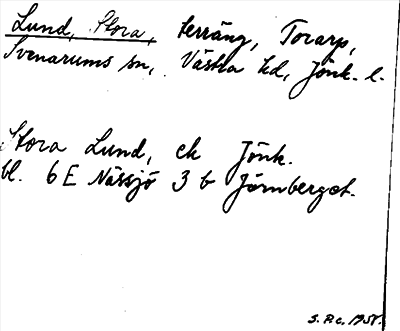 Lund, Stora, terräng, Torarp,
Svenarums sn, Västra hd, Jönk. l.
Stora Lund, ek Jönk.
bl. 6 E Nässjö 3 b Järnberget.
S.R.c. 1958.